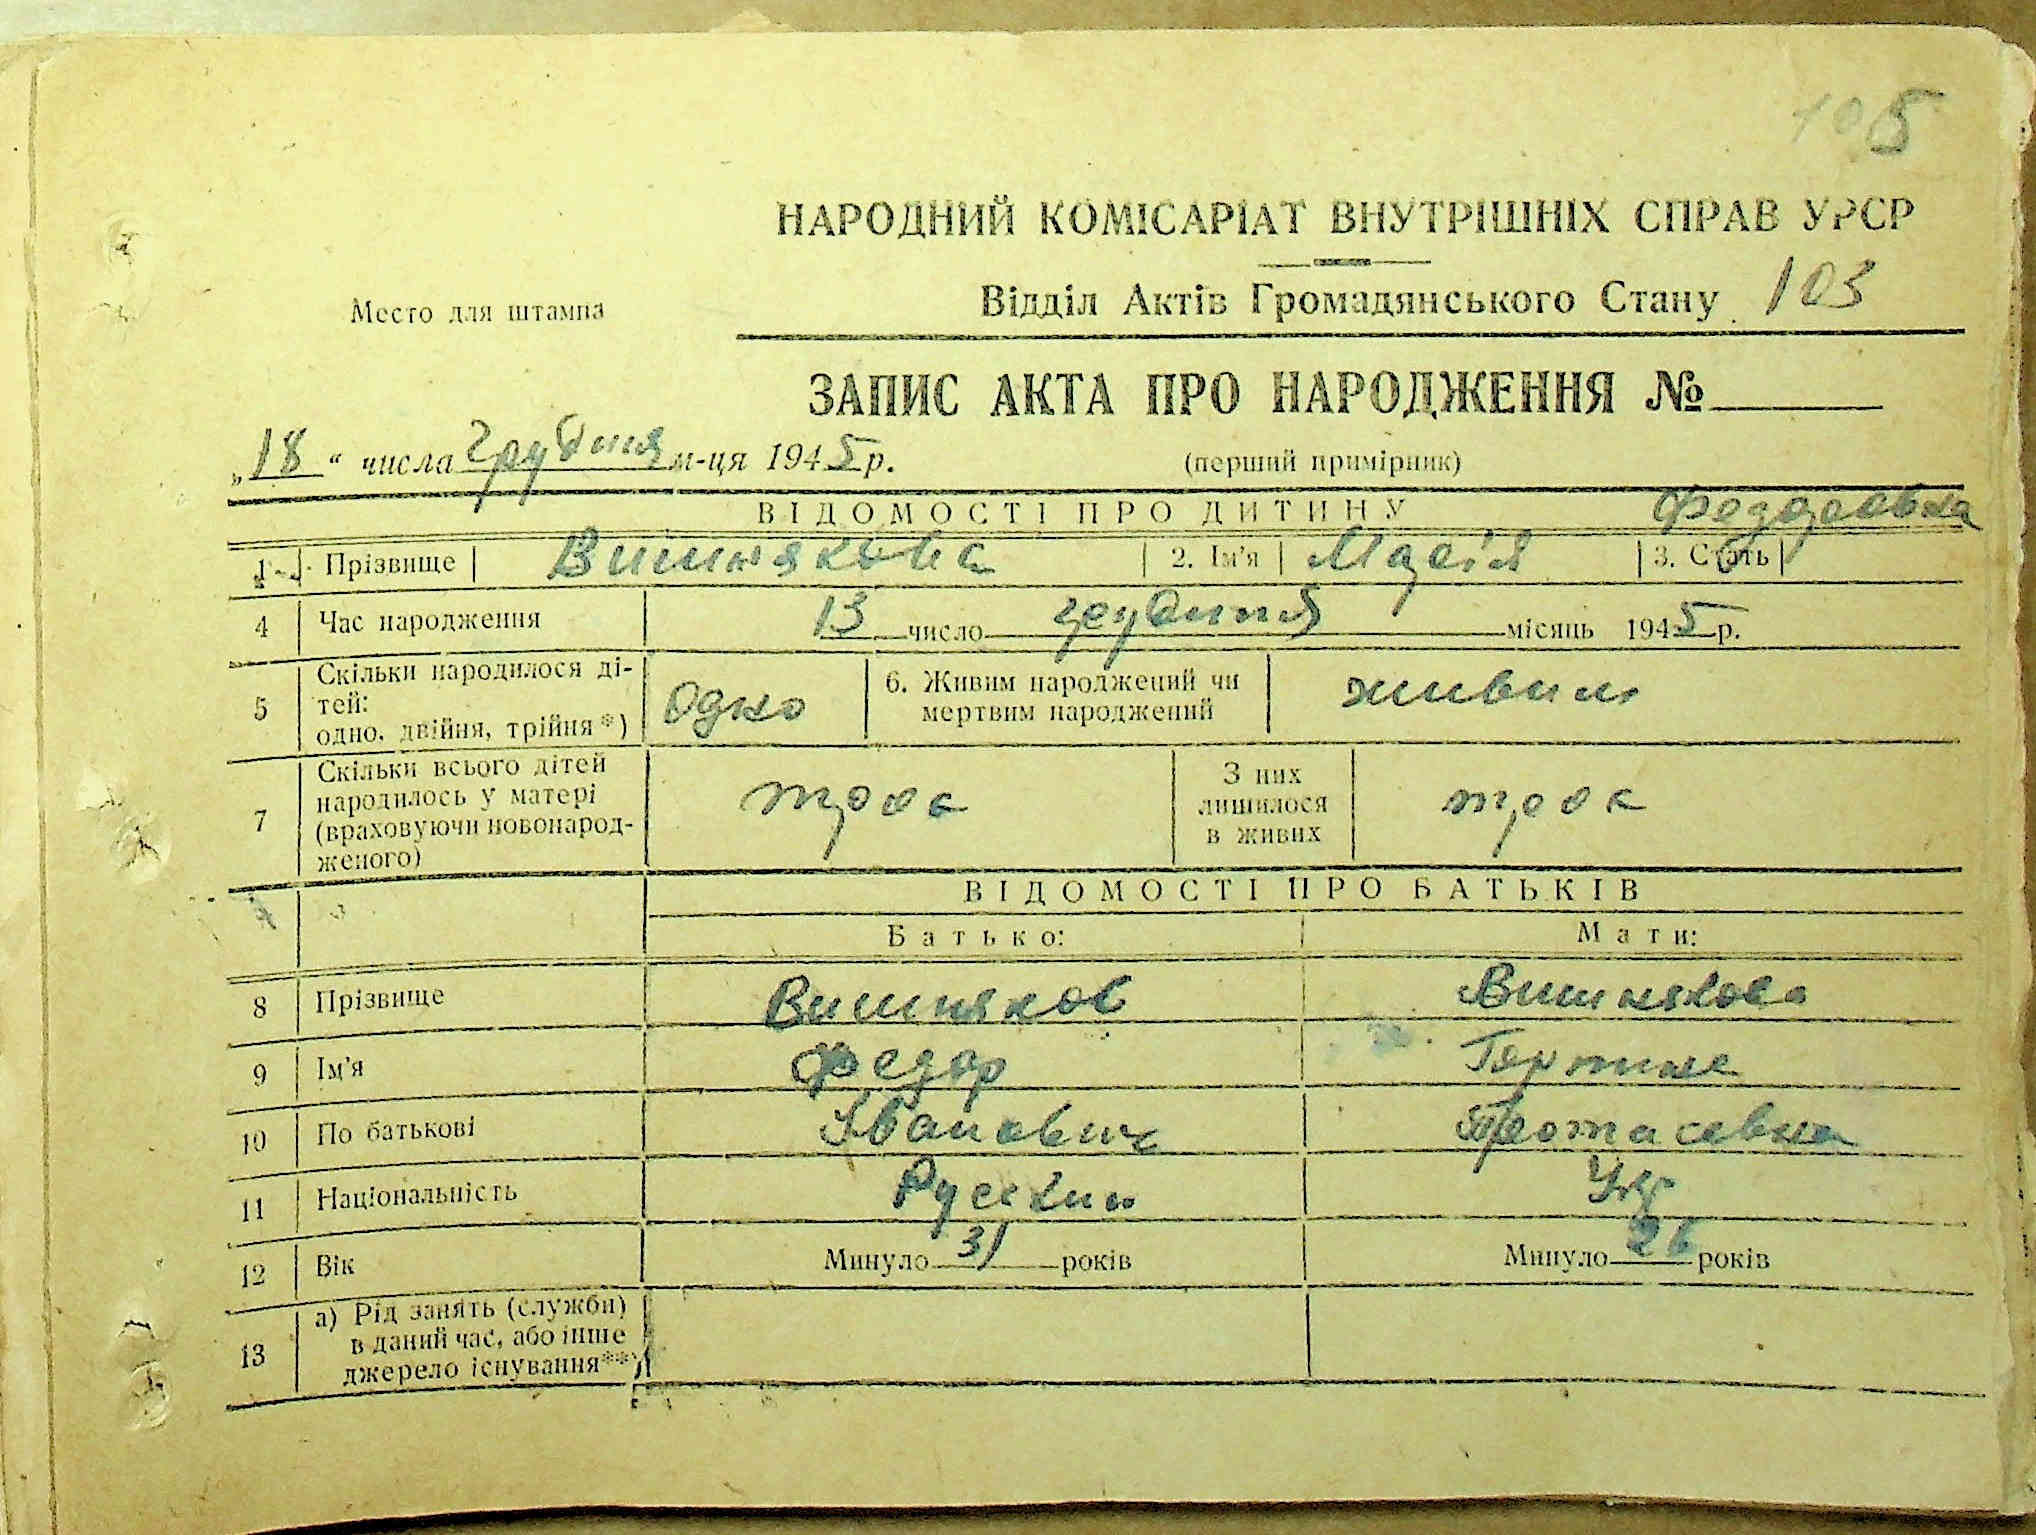 105
НАРОДНИЙ КОМІСАРІАТ ВНУТРІШНІХ СПРАВ УРСР
Место для штампа
Відділ Актів Громадянського Стану 103
ЗАПИС АКТА ПРО НАРОДЖЕННЯ №
„18“ числа грудня м-ця 1945 р.
(перший примірник)
ВІДОМОСТІ ПРО ДИТИНУ
1 Прізвище Вишнякова 2. Ім'я Марія 3. Стать
4 Час народження 13 число грудня місяць 1945 р.
5 Скільки народилося ді-
тей:
одно, двійня, трійня*) Одно
6. Живим народжений чи
мертвим народжений живим
7 Скільки всього дітей
народилось у матері
(враховуючи новонарод-
женого) троє
З них
лишилося
в живих троє
ВІДОМОСТІ ПРО БАТЬКІВ
Батько: Мати:
8 Прізвище Вишняков Вишнякова
9 Ім'я Федор
10 По батькові Іванович Протасевна
11 Національність Руский Укр
12 Вік Минуло 31 років Минуло 26 років
13 а) Рід занять (служби)
в даний час, або інше
джерело існування**)